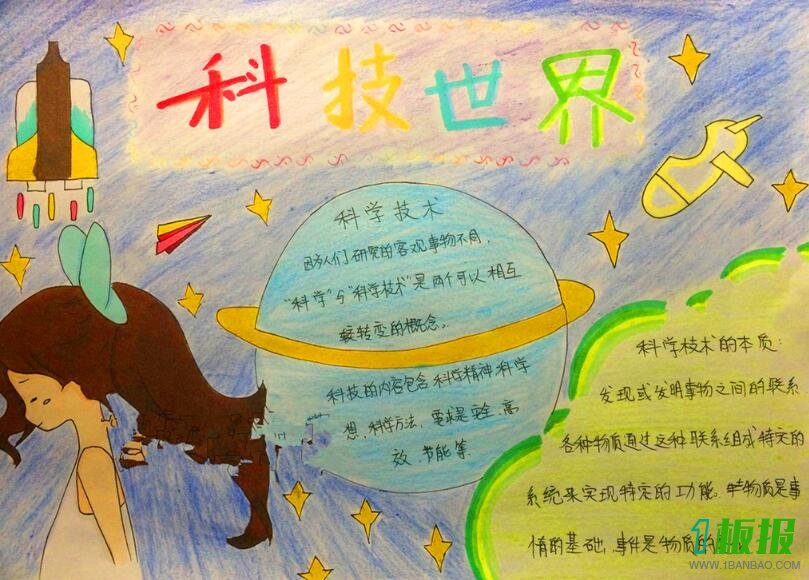 科技世界
科学技术
因为人们研究的客观事物不同,
"科学"与"科学技术"是两个可以相互
转变的概念。
科技的内容包含科学精神科学
想,科学方法,要求是 高
效.节能等.
科学技术的本质:
发现或发明事物之间的联系
各种物质通过这种联系组成特定的
系统来实现特定的功能. 物质是事
情的基础,事件是物质的
1板报
WWW.1BANBAO.COM